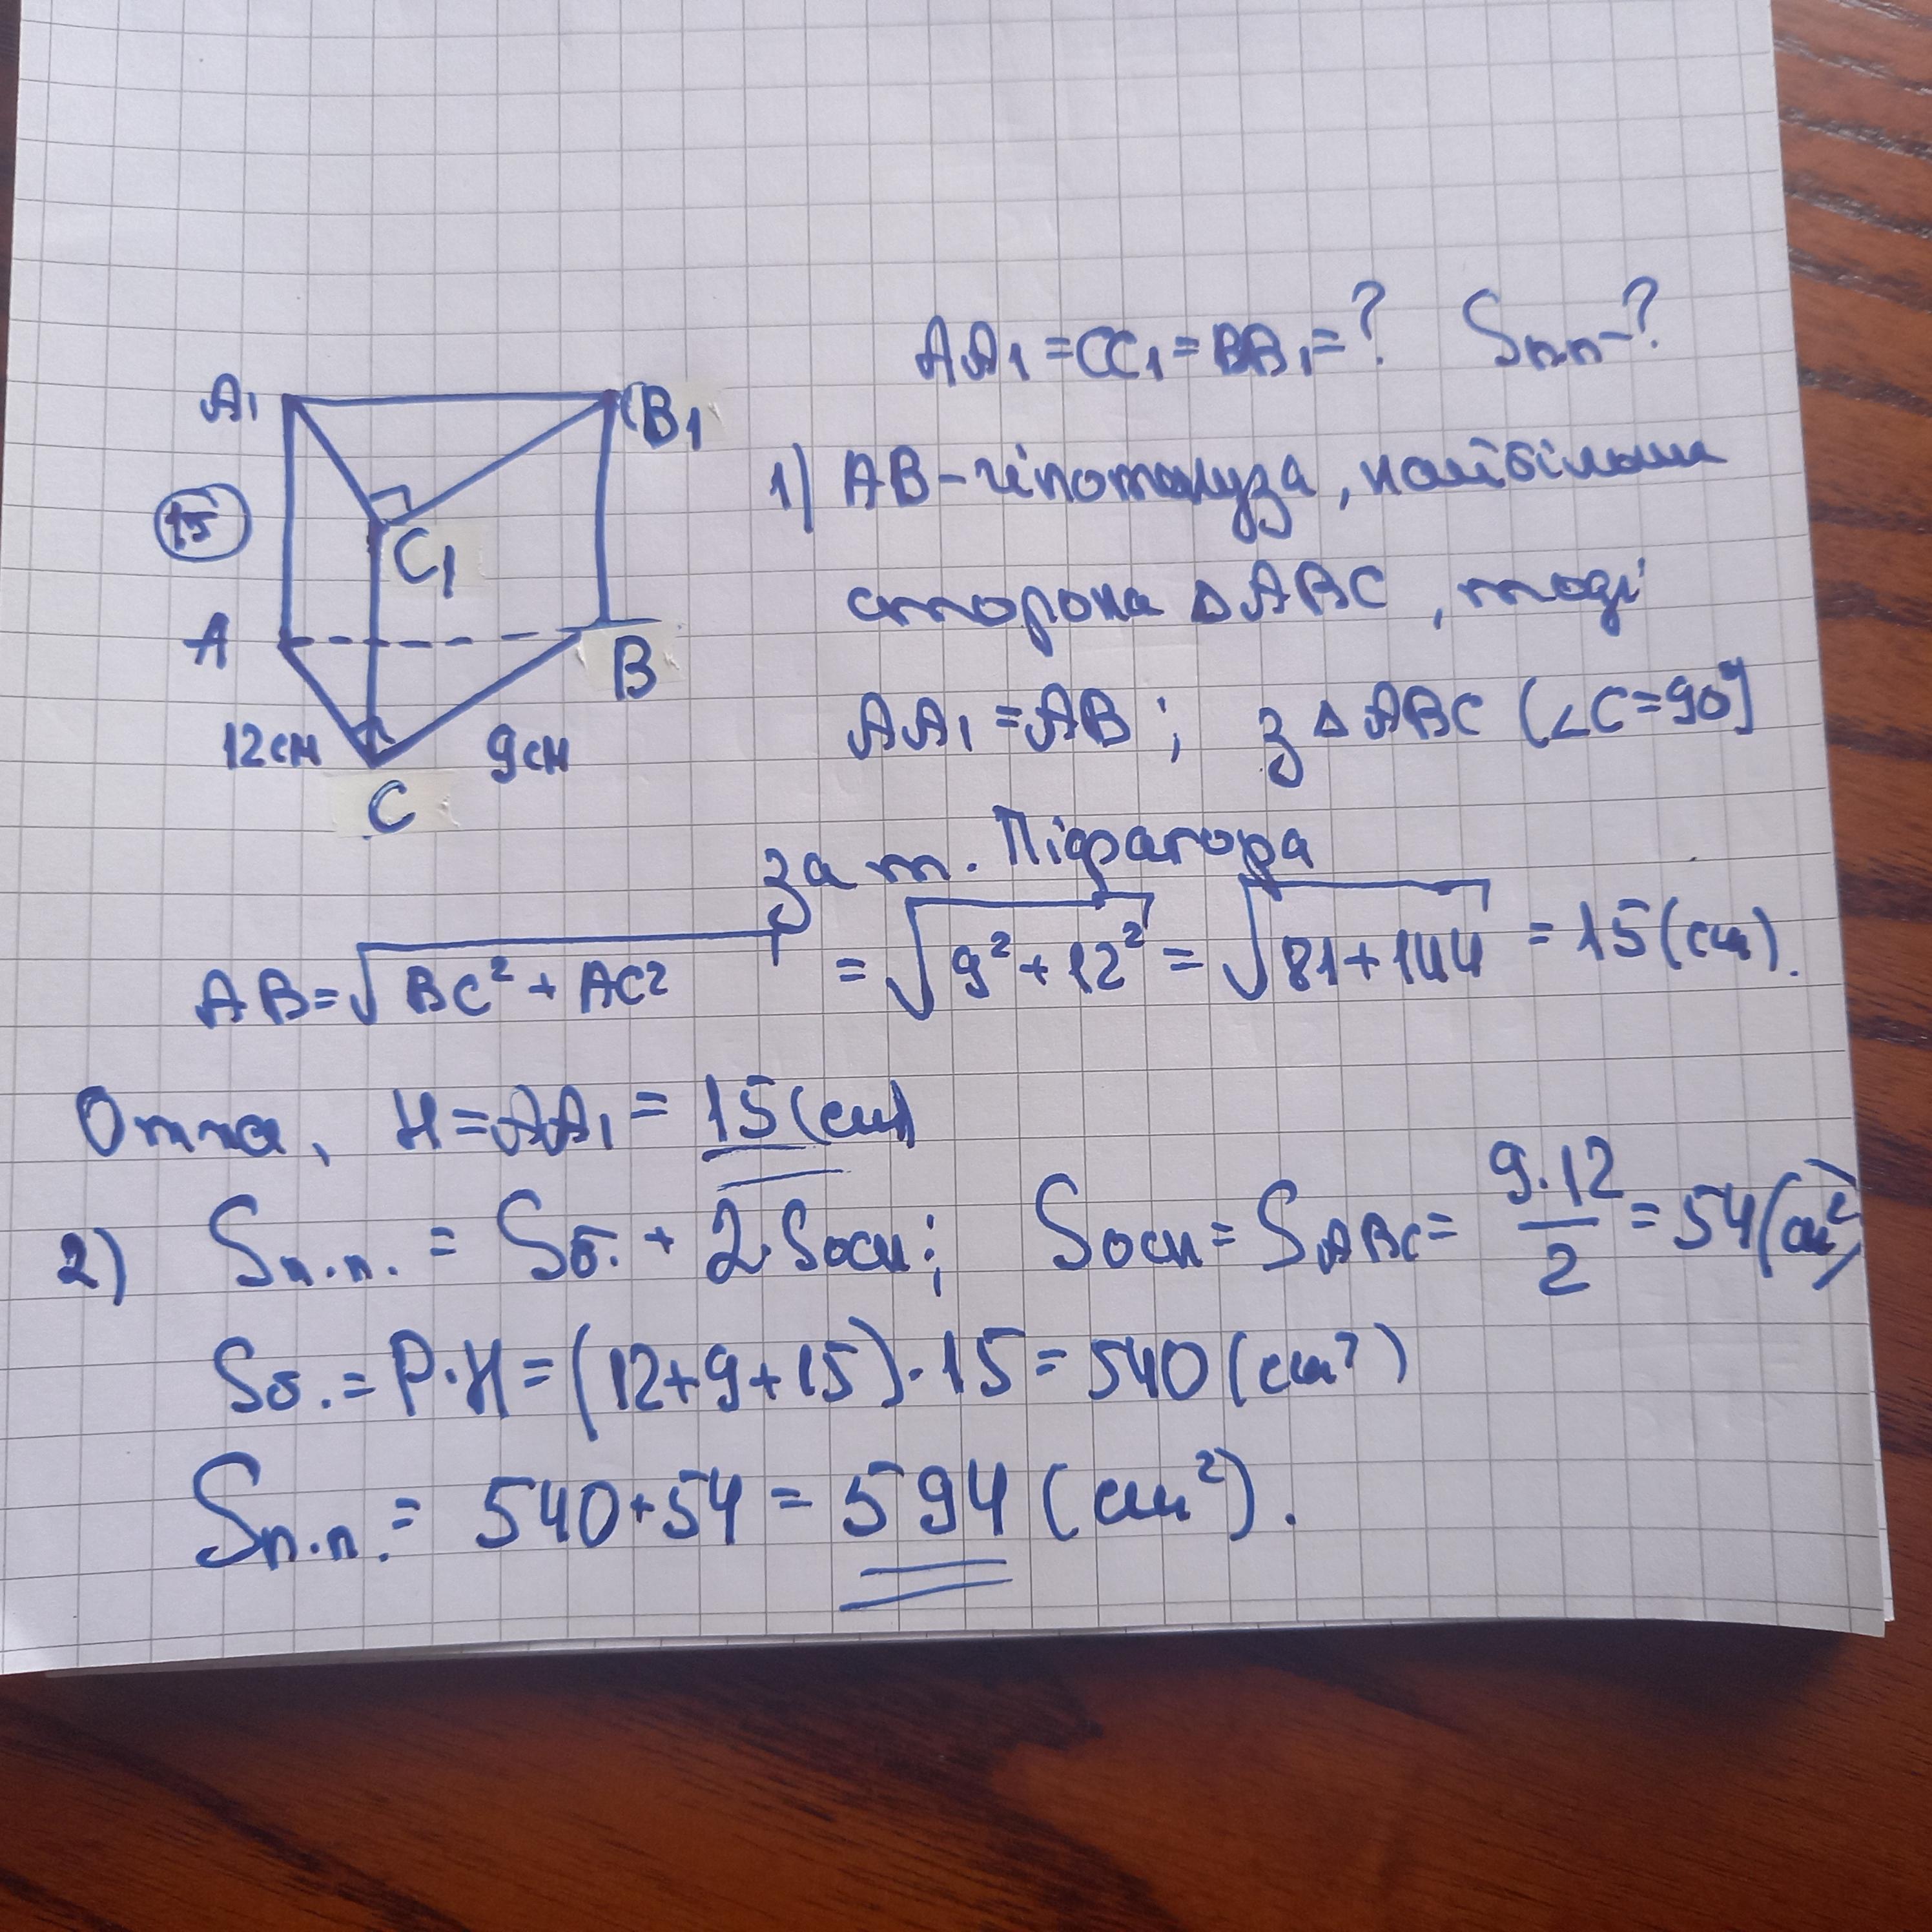 AA₁ = CC₁ = BB₁ = ? Sп.п - ?
A₁
B₁
15
C₁
A
B
12см
9см
C
1) AB - гіпотенуза, найбільша
сторона △ ABC, тоді
AA₁ = AB; з △ ABC (∠C=90°)
за т. Піфагора
AB = √BC² + AC² = √9² + 12² = √81 + 144 = 15 (см).
Отже, H = AA₁ = 15 (см)
2) Sп.п. = Sб. + 2·Sосн; Sосн = SABC = 9·12/2 = 54 (см²)
Sб. = P·H = (12+9+15)·15 = 540 (см²)
Sп.п. = 540 + 54 = 594 (см²).